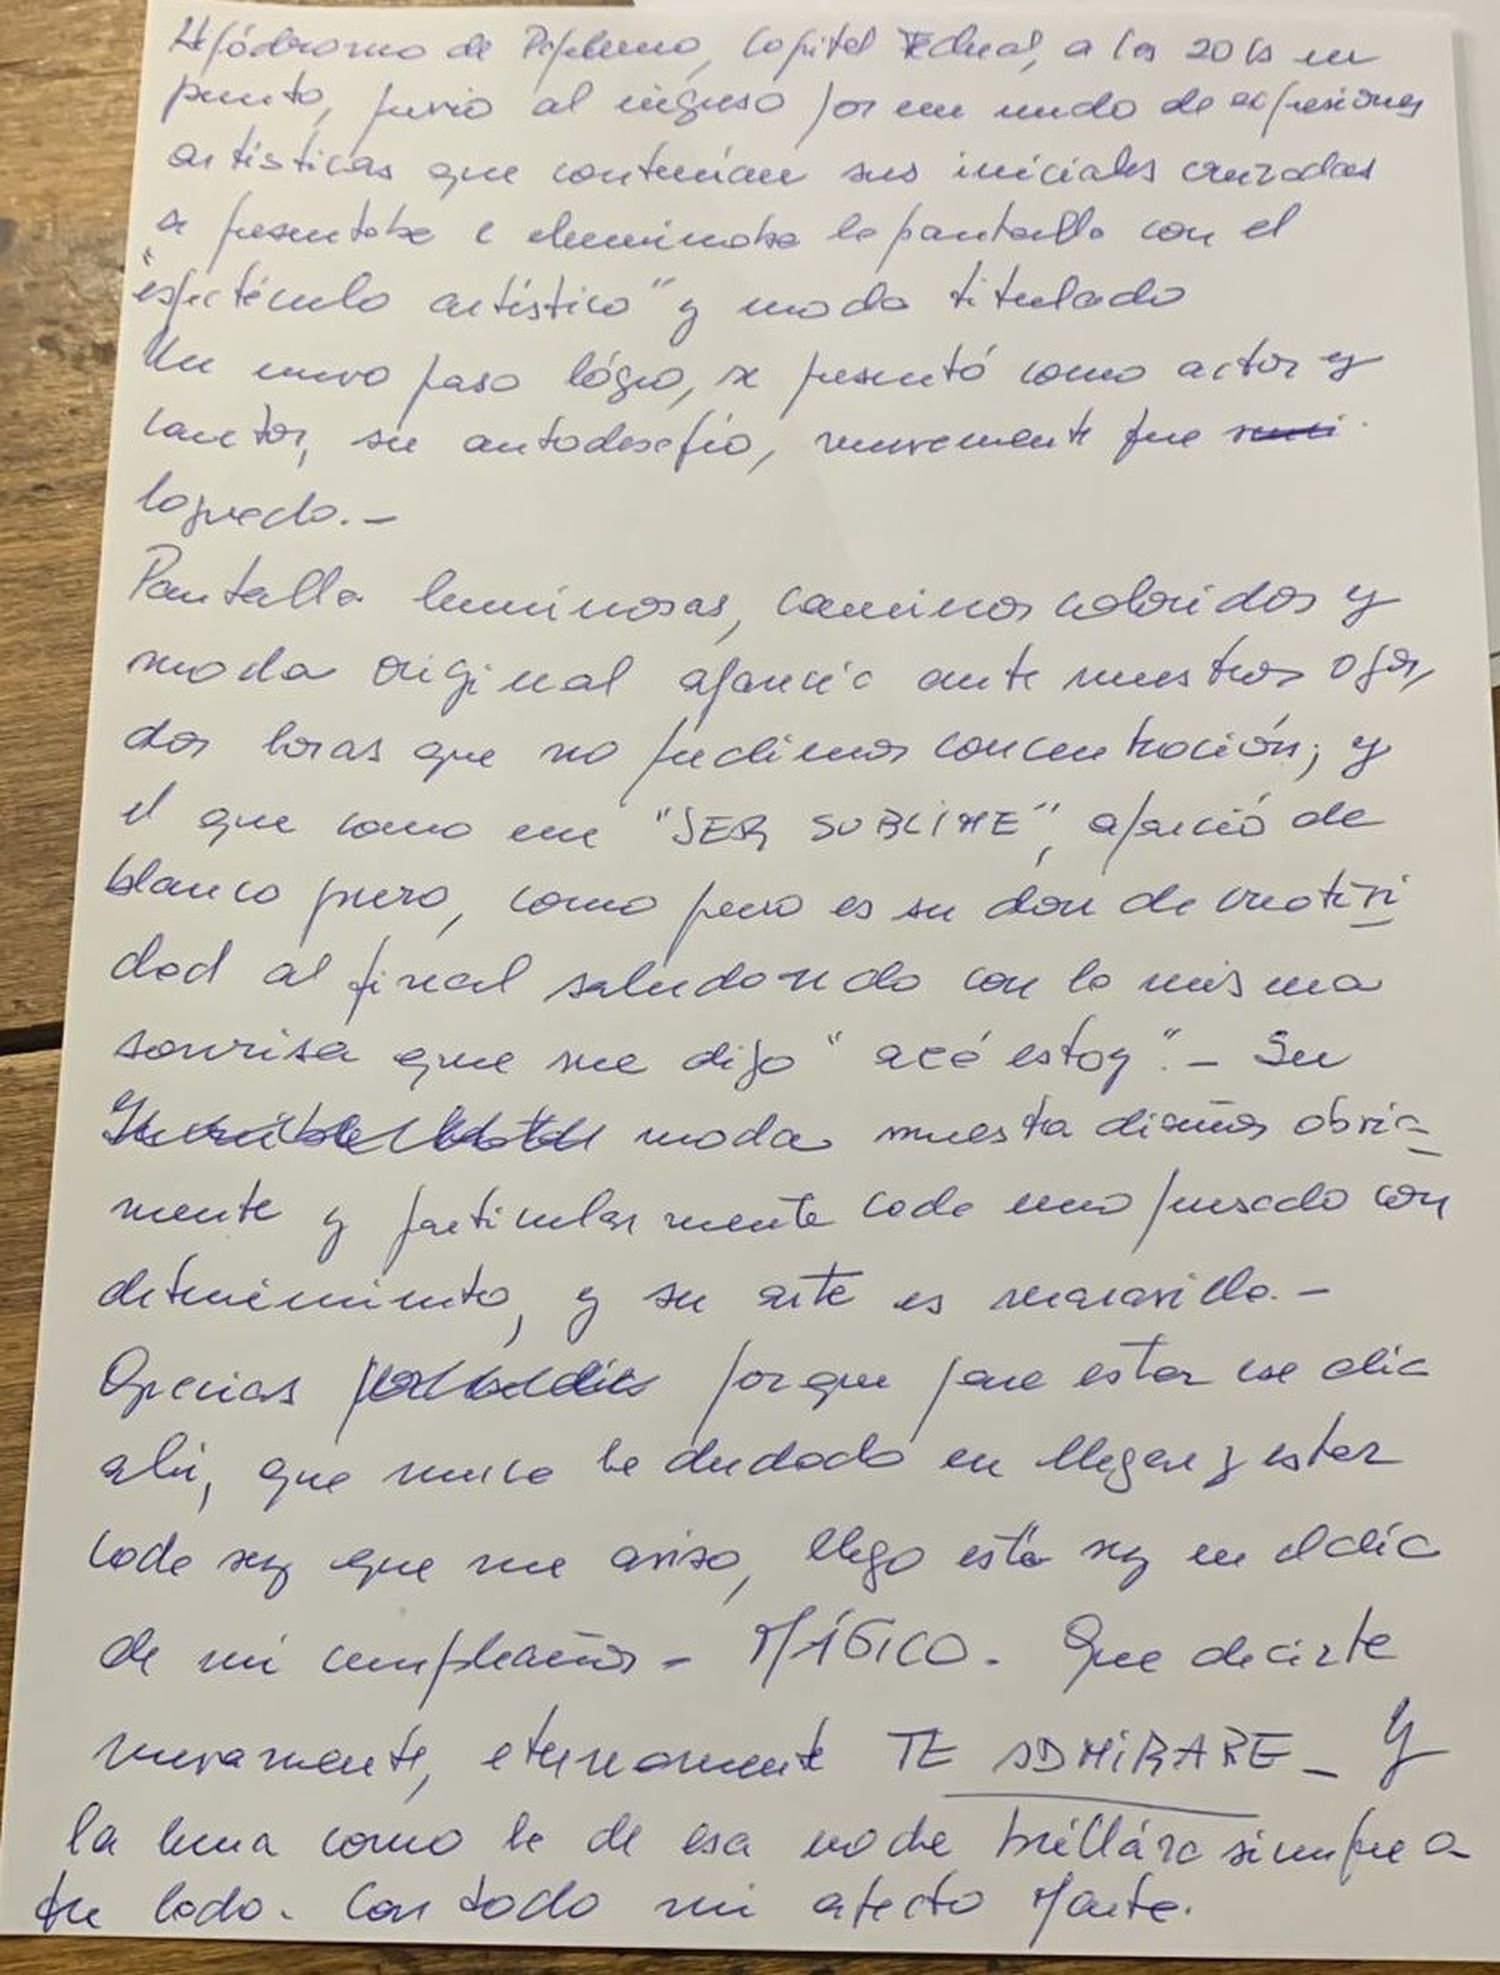 Hipódromo de Palermo, Capital Federal, a las 20 hs en
punto, previo al ingreso por un mundo de expresiones
artísticas que contenían sus iniciales cruzadas
se presentaba e iluminaba la pantalla con el
"espectáculo artístico" y moda titulado
Un nuevo paso lógico, se presentó como actor y
cantor, su autodesafío, nuevamente fue
logrado.-
Pantalla luminosas, caminos coloridos y
moda original apareció ante nuestros ojos,
dos horas que no perdimos concentración; y
el que como un "SER SUBLIME", apareció de
blanco puro, como puro es su don de creativi
dad al final saludando con la misma
sonrisa que me dijo "acá estoy".- Su
moda muestra diseños obvia
mente y particularmente cada uno pensado con
detenimiento, y su arte es maravilla.-
Gracias porque pude estar ese día
ahí, que nunca he dudado en llegar y estar
cada vez que me aviso, llego esta vez en el día
de mi cumpleaños - MÁGICO. Que decirte
nuevamente, eternamente TE ADMIRARE - Y
la luna como la de esa noche brillára siempre a
tu lado. Con todo mi afecto Marte.